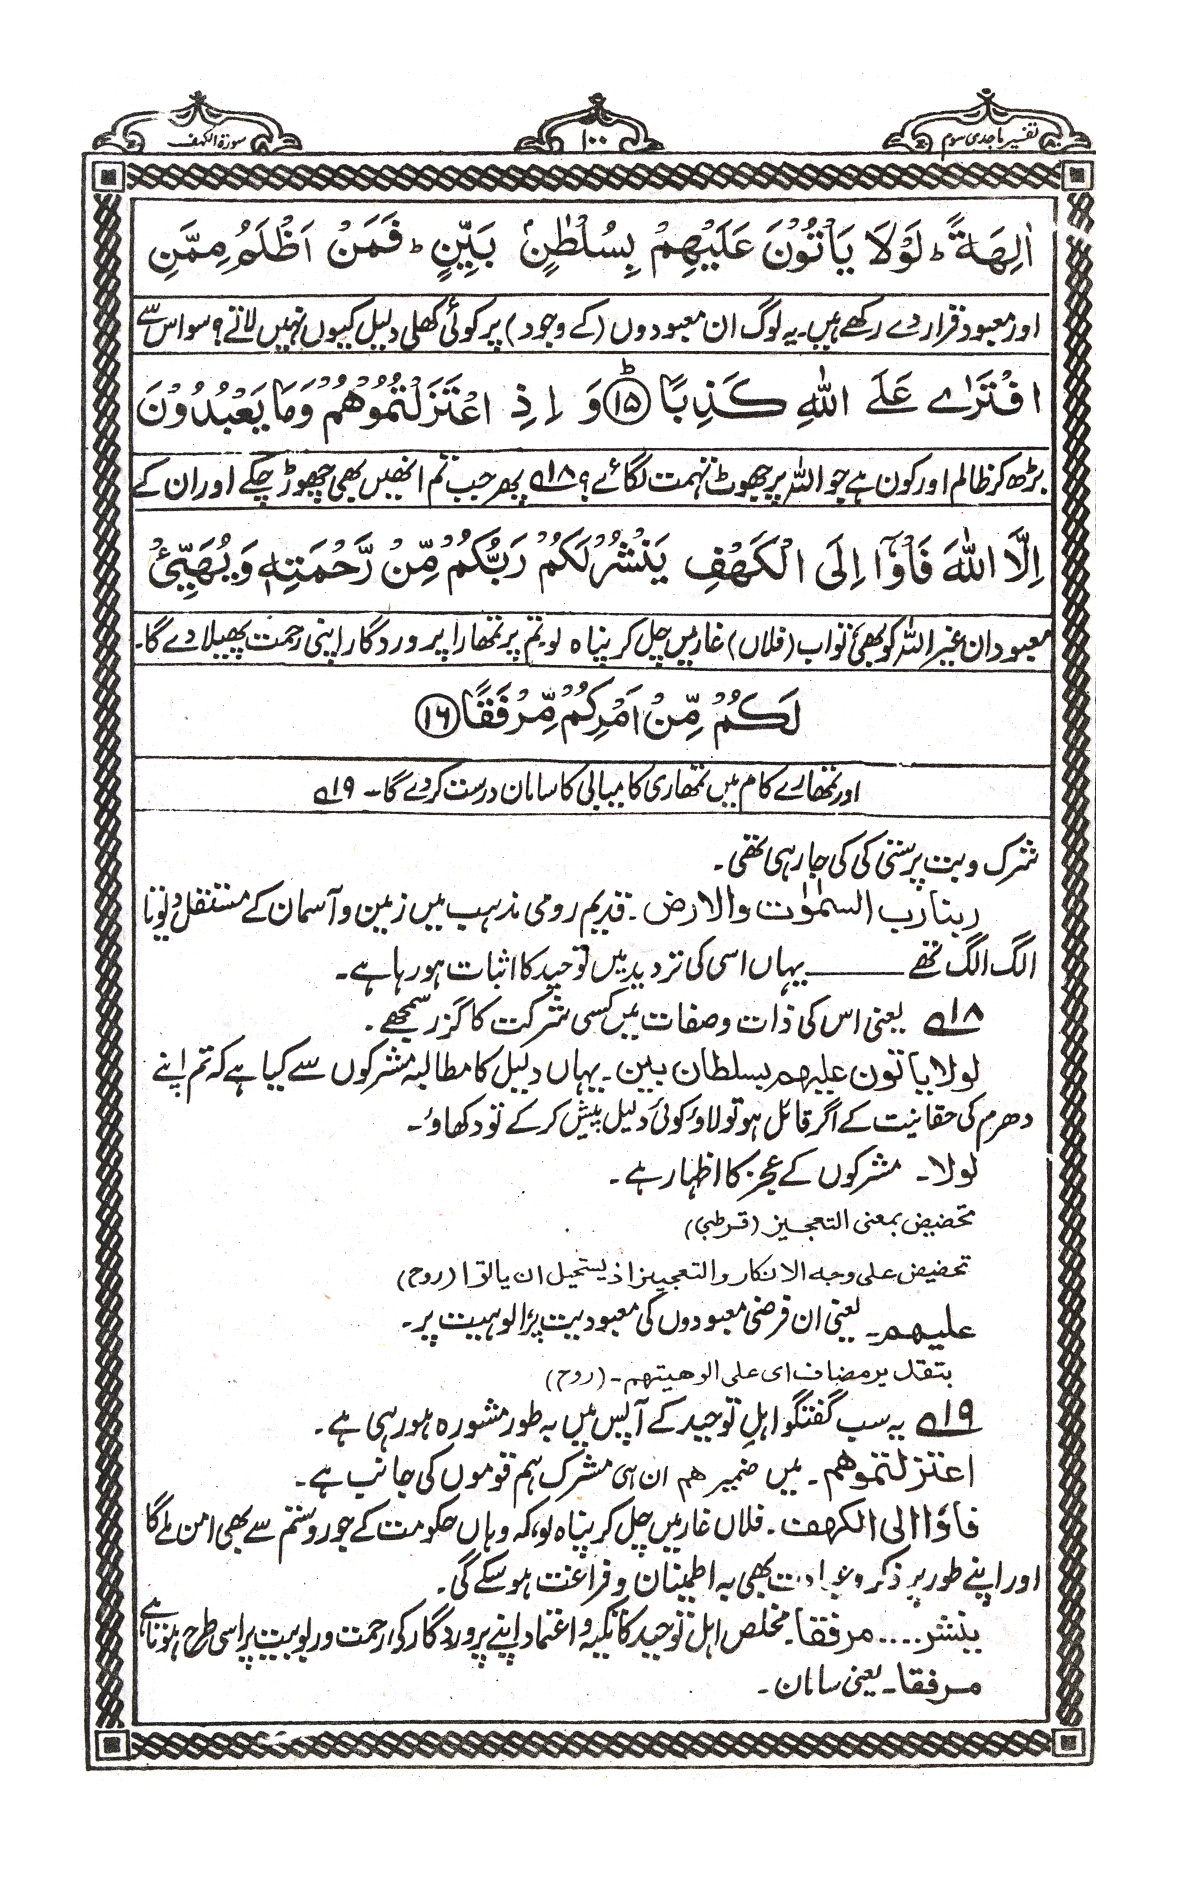 تفسیر ماجدی سوم
۱۰۰
سورۃ الکہف
اٰلِهَةً ؕ لَوْلَا يَاْتُوْنَ عَلَيْهِمْ بِسُلْطٰنٍۭ بَيِّنٍ ؕ فَمَنْ اَظْلَمُ مِمَّنِ
اور معبود قرار دے رکھے ہیں۔ یہ لوگ ان معبودوں (کے وجود) پر کوئی کھلی دلیل کیوں نہیں لاتے؟ سو اس سے
افْتَرٰى عَلَى اللّٰهِ كَذِبًا ؕ ⑮ وَ اِذِ اعْتَزَلْتُمُوْهُمْ وَمَا يَعْبُدُوْنَ
بڑھ کر ظالم اور کون ہے جو اللہ پر جھوٹ تہمت لگائے؟ ۱۸؎ پھر جب تم انھیں بھی چھوڑ چکے اور ان کے
اِلَّا اللّٰهَ فَاْوٗۤا اِلَى الْكَهْفِ يَنْشُرْ لَكُمْ رَبُّكُمْ مِّنْ رَّحْمَتِهٖ وَيُهَيِّئْ
معبودان غیر اللہ کو بھی تو اب (فلاں) غار میں چل کر پناہ لو تم پر تمھارا پروردگار اپنی رحمت پھیلا دے گا۔
لَكُمْ مِّنْ اَمْرِكُمْ مِّرْفَقًا ⑯
اور تمھارے کام میں تمھاری کامیابی کا سامان درست کردے گا۔ ۱۹؎
شرک و بت پرستی کی کی جارہی تھی۔
ربنا رب السمٰوٰت والارض۔ قدیم رومی مذہب میں زمین و آسمان کے مستقل دیوتا
الگ الگ تھے ــــــــ یہاں اسی کی تردید میں توحید کا اثبات ہو رہا ہے۔
۱۸؎ یعنی اس کی ذات وصفات میں کسی شرکت کا گزر سمجھے۔
لولا یاتون علیہم بسلطان بین۔ یہاں دلیل کا مطالبہ مشرکوں سے کیا ہے کہ تم اپنے
دھرم کی حقانیت کے اگر قائل ہو تو لاؤ کوئی دلیل پیش کرکے تو دکھاؤ۔
لولا۔ مشرکوں کے عجز کا اظہار ہے۔
تحضیض بمعنی التعجیز (قرطبی)
تحضیض علی وجہ الانکار والتعجیز اذ یستحیل ان یاتوا (روح)
علیہم۔ یعنی ان فرضی معبودوں کی معبودیت پر الوہیت پر۔
بتقدیر مضاف ای علی الوھیتھم۔ (روح)
۱۹؎ یہ سب گفتگو اہلِ توحید کے آپس میں بہ طور مشورہ ہو رہی ہے۔
اعتزلتموھم۔ میں ضمیر ھم ان ہی مشرک ہم قوموں کی جانب ہے۔
فاوٗا الی الکھف۔ فلاں غار میں چل کر پناہ لو، کہ وہاں حکومت کے جور و ستم سے بھی امن ملے گا
اور اپنے طور پر ذکر و عبادت بھی بہ اطمینان و فراغت ہو سکے گی۔
ینشر .... مرفقا۔ مخلص اہل توحید کا تکیہ و اعتماد اپنے پروردگار کی رحمت و ربوبیت پر اسی طرح ہوتا ہے
مرفقا۔ یعنی سامان۔